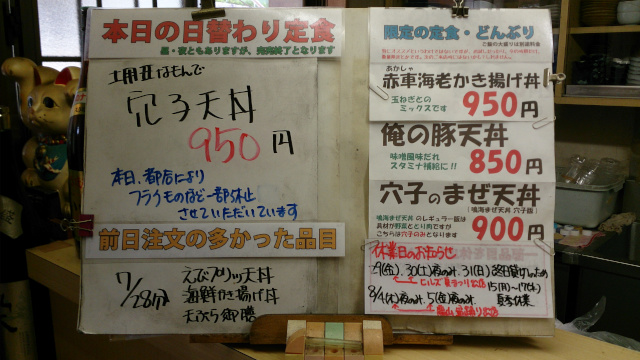 本日の日替わり定食
昼・夜ともありますが、完売終了となります
土用丑なもんで
穴子天丼
950円
本日、都合により
フライものなど一部休止
させていただいています
前日注文の多かった品目
7/28分
えびプリッツ天丼
海鮮かき揚げ丼
天ぷら御膳
限定の定食・どんぶり
ご飯の大盛りは別途料金
あかしゃ
赤車海老かき揚げ丼
玉ねぎとの
ミックスです
950円
俺の豚天丼
味噌風味だれ
スタミナ補給に!!
850円
穴子のまぜ天丼
鳴海まぜ天丼 のレギュラー版は
具材が野菜ととり肉ですが
こちらは穴子のみとなります
(鳴海まぜ天丼 穴子版)
900円
休業日のお知らせ
7/29(金)、30(土)夜のみ、31(日)終日
8/4(木)夜のみ、5(金)夜のみ
15(月)〜17(水)
夏季休業